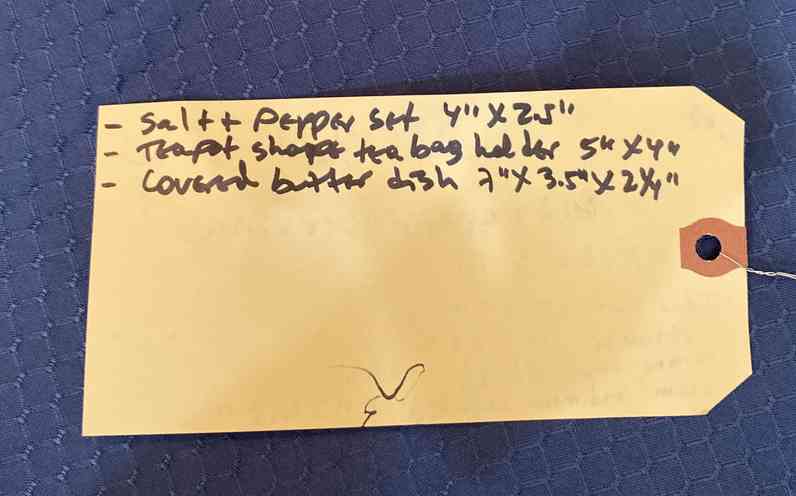 - Salt + Pepper Set 4" X 2.5"
- Teapot shape tea bag holder 5" X 4"
- Covered butter dish 7" X 3.5" X 2¼"